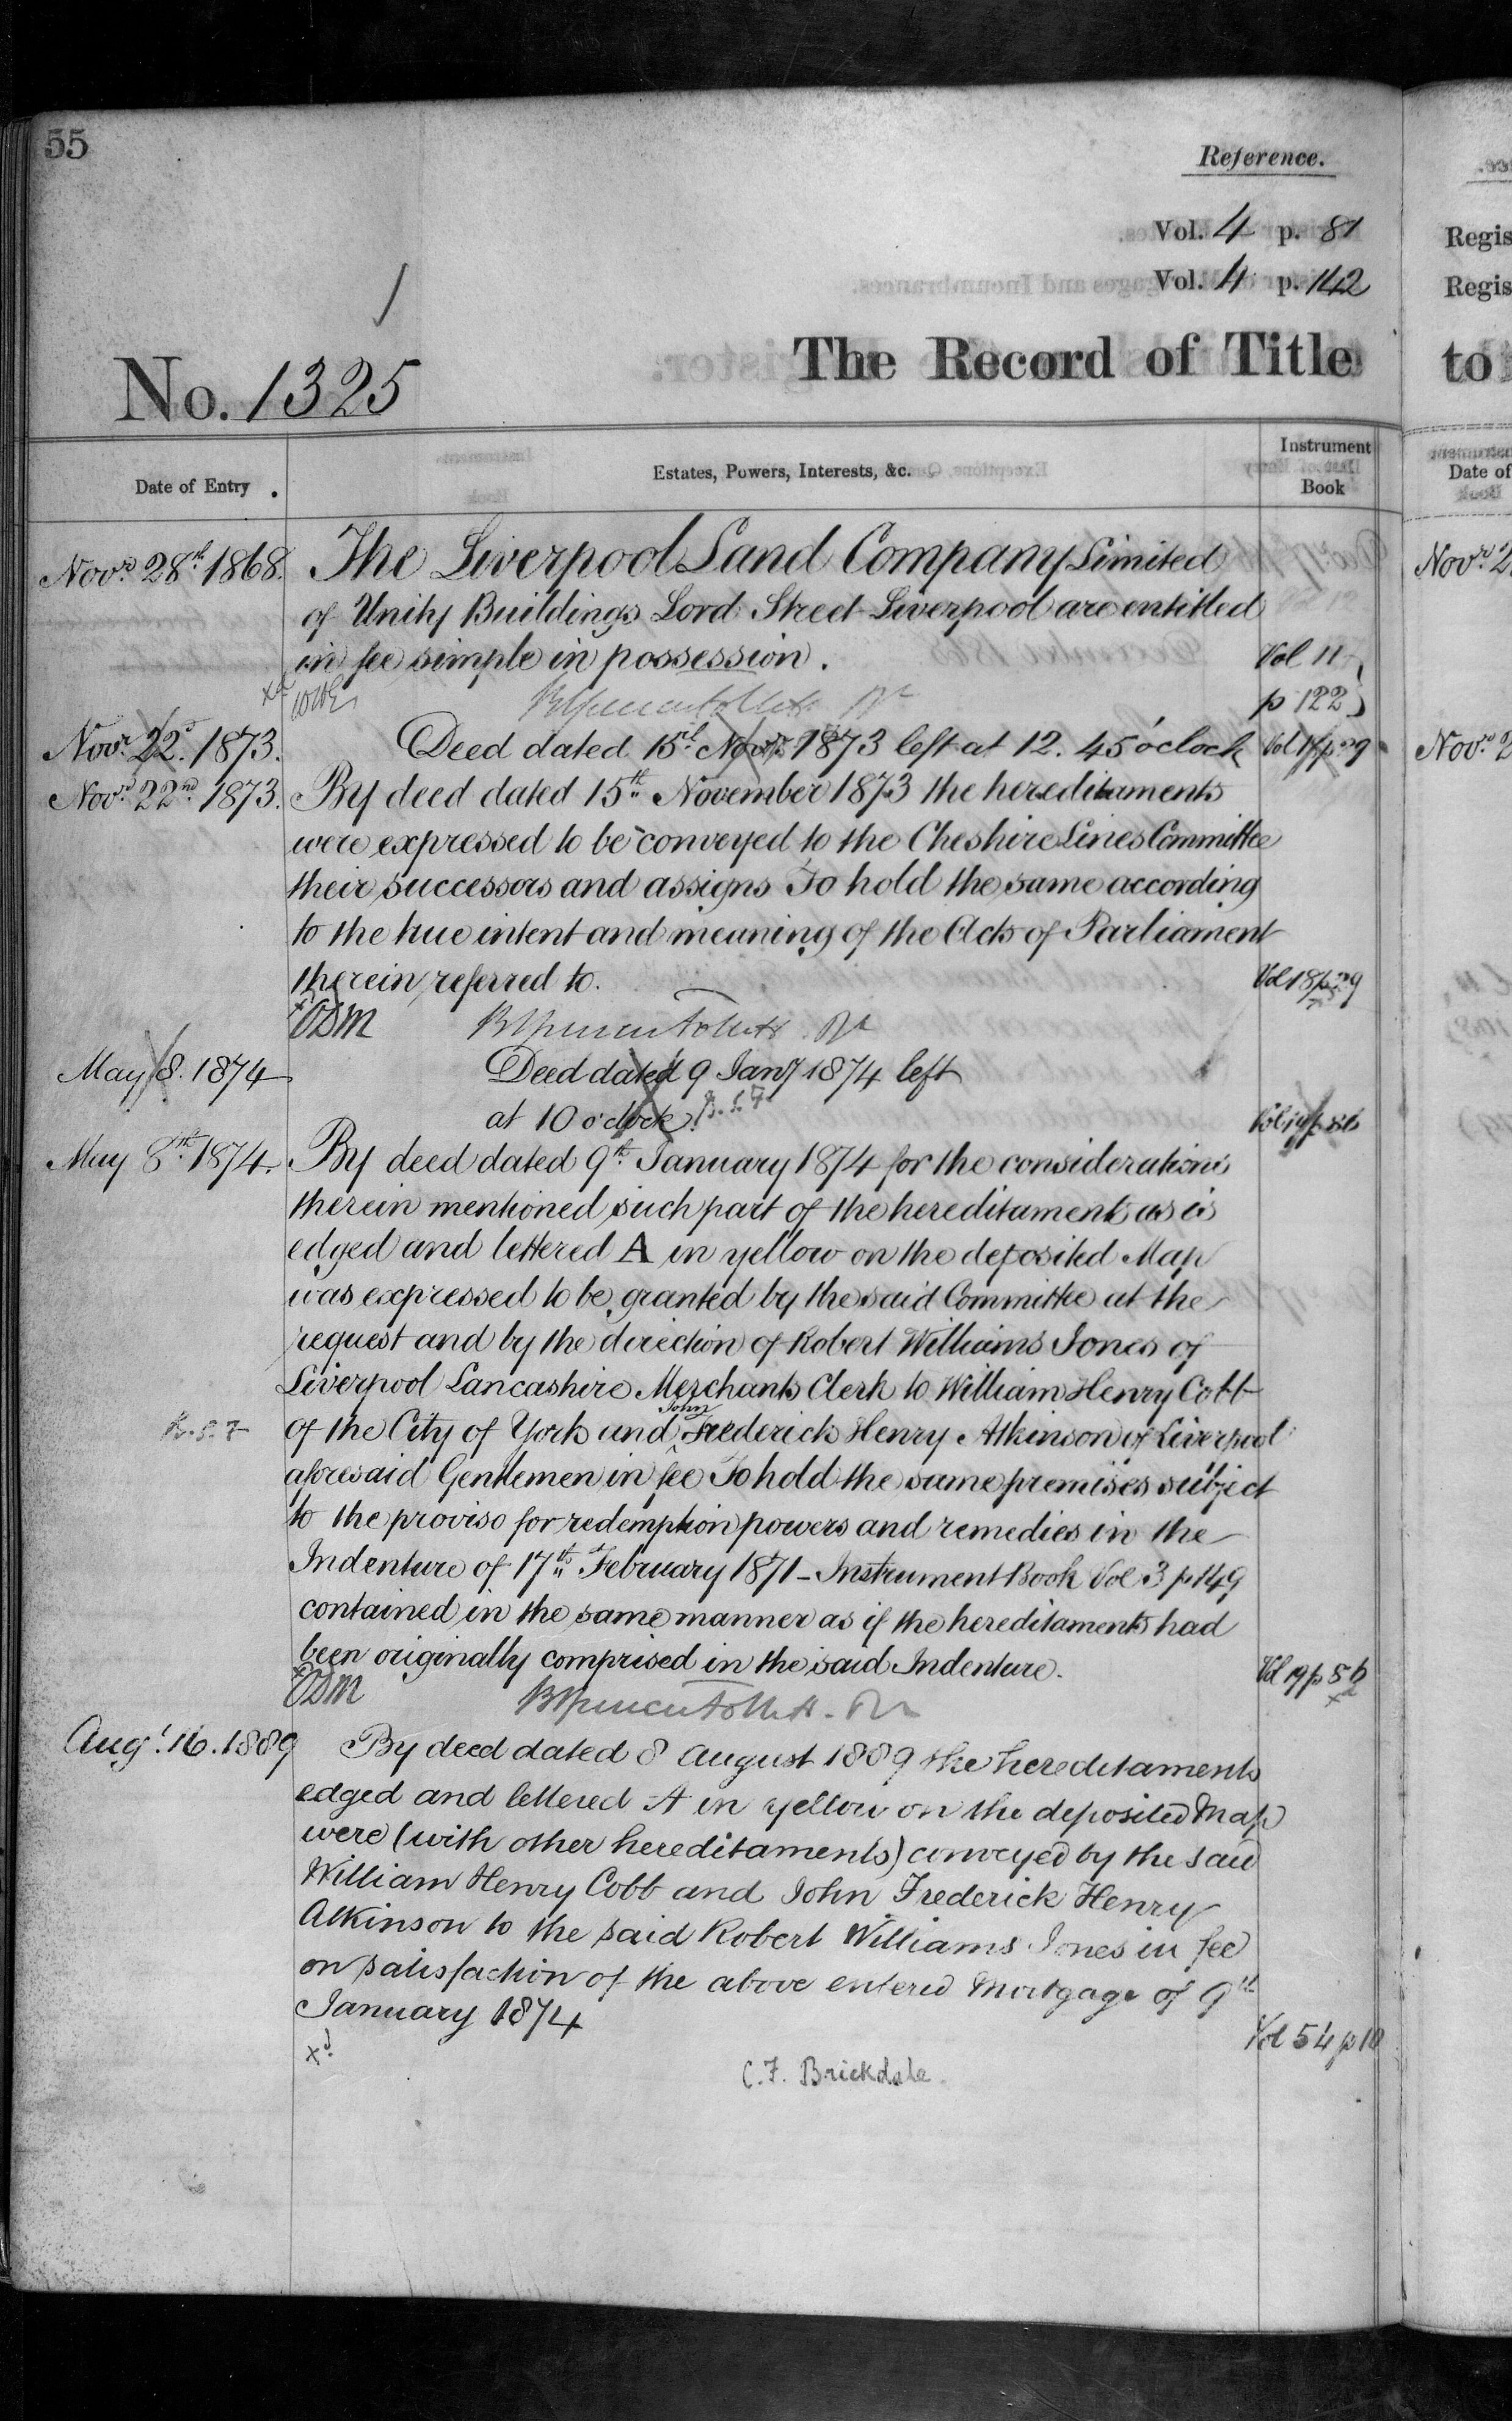 55
Reference.
Vol. 4 p. 81
Vol. 4 p. 142
No. 1325
The Record of Title
Date of Entry
Estates, Powers, Interests, &c.
Instrument Book
Novr 28th 1868. The Liverpool Land Company Limited
of Unity Buildings Lord Street Liverpool are entitled
in fee simple in possession. Vol 11
p 122
Novr 22d. 1873. Deed dated 15th Novr 1873 left at 12.45 o'clock
Novr 22nd 1873. By deed dated 15th November 1873 the hereditaments
were expressed to be conveyed to the Cheshire Lines Committee
their successors and assigns To hold the same according
to the true intent and meaning of the Acts of Parliament
therein referred to. Vol 18 p
ODM
May 8. 1874 Deed dated 9 Jany 1874 left
at 10 o'clock.
May 8th 1874. By deed dated 9th January 1874 for the considerations
therein mentioned such part of the hereditaments as is
edged and lettered A in yellow on the deposited Map
was expressed to be granted by the said Committee at the
request and by the direction of Robert Williams Jones of
Liverpool Lancashire Merchants Clerk to William Henry Cobb
of the City of York and John Frederick Henry Atkinson of Liverpool
aforesaid Gentlemen in fee To hold the same premises subject
to the proviso for redemption powers and remedies in the
Indenture of 17th February 1871 - Instrument Book Vol 3 p 149
contained in the same manner as if the hereditaments had
been originally comprised in the said Indenture. Vol 19 p 56
ODM
Augt. 16. 1889 By deed dated 8 August 1889 the hereditaments
edged and lettered A in yellow on the deposited Map
were (with other hereditaments) conveyed by the said
William Henry Cobb and John Frederick Henry
Atkinson to the said Robert Williams Jones in fee
on satisfaction of the above entered Mortgage of 9th
January 1874 Vol 54 p 10
C. F. Brickdale
to
Regis
Regis
Date of
Novr 2
Novr 2